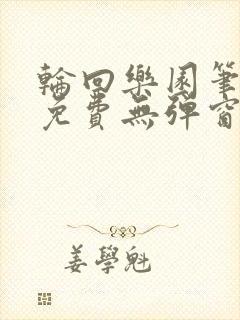 輪回樂園筆
免費無彈窗
姜學魁